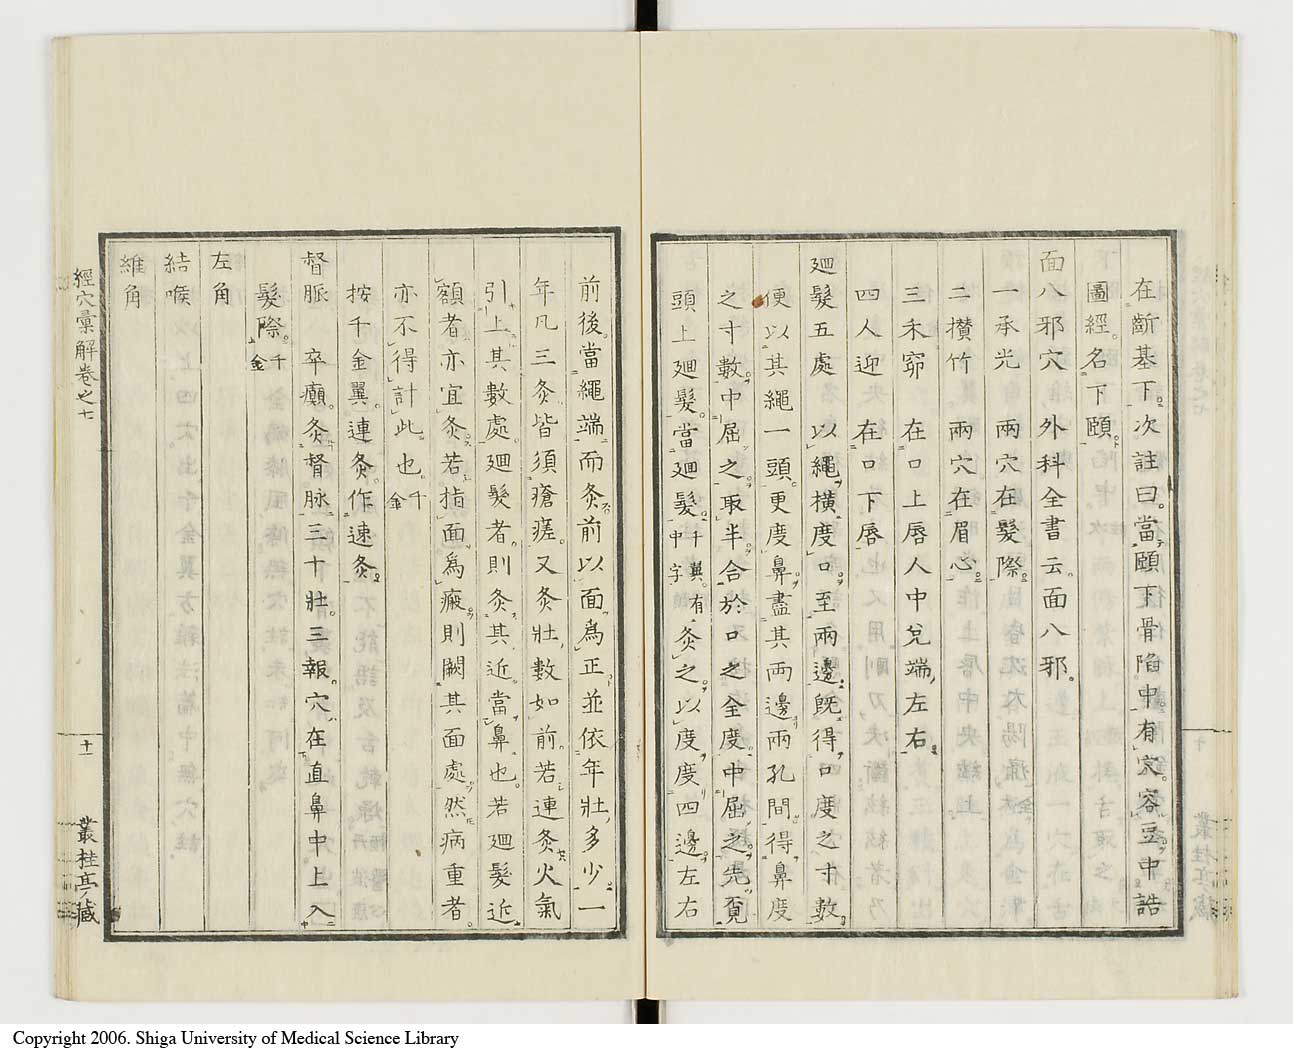 在斷基下。次註曰。當頤下骨陷中。有穴容豆。中誥
圖經。名下頤。
面八邪穴 外科全書云。面八邪。
一承光 兩穴在髮際。
二攅竹 兩穴在眉心。
三禾窌 在口上唇人中兌端左右。
四人迎 在口下唇
廻髮五處 以繩橫度口。至兩邊。旣得口度之寸數。
便以其繩一頭。更度鼻。盡其両邊両孔間。得鼻度
之寸數。中屈之。取半。合於口之全度。中屈之。先覓
頭上廻髮。當廻髮。千翼。有中字灸之。以度度四邊左右
前後。當繩端而灸。前以面為正。並依年壯多少。一
年凡三灸。皆須瘡瘥。又灸壯數如前。若連灸火氣
引上其數處。廻髮者。則灸其近當鼻也。若廻髮近
額者。亦宜灸。若指面為癜。則闕其面處。然病重者。
亦不得計此也。千金
按千金翼。連灸作速灸。
督脈 卒癲。灸督脉三十壯。三報。穴在直鼻中上入
髮際。千金
左角
結喉
維角
經穴彙解卷之七
十一
叢桂亭藏